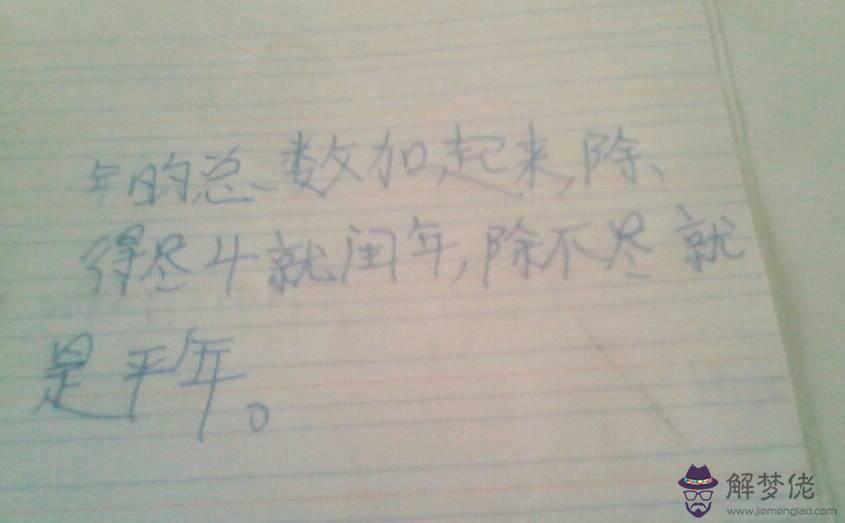 年的总、数加,起来,除、
得尽4就闰年,除不尽就
是平年。
解梦佬
www.jiemenglao.com